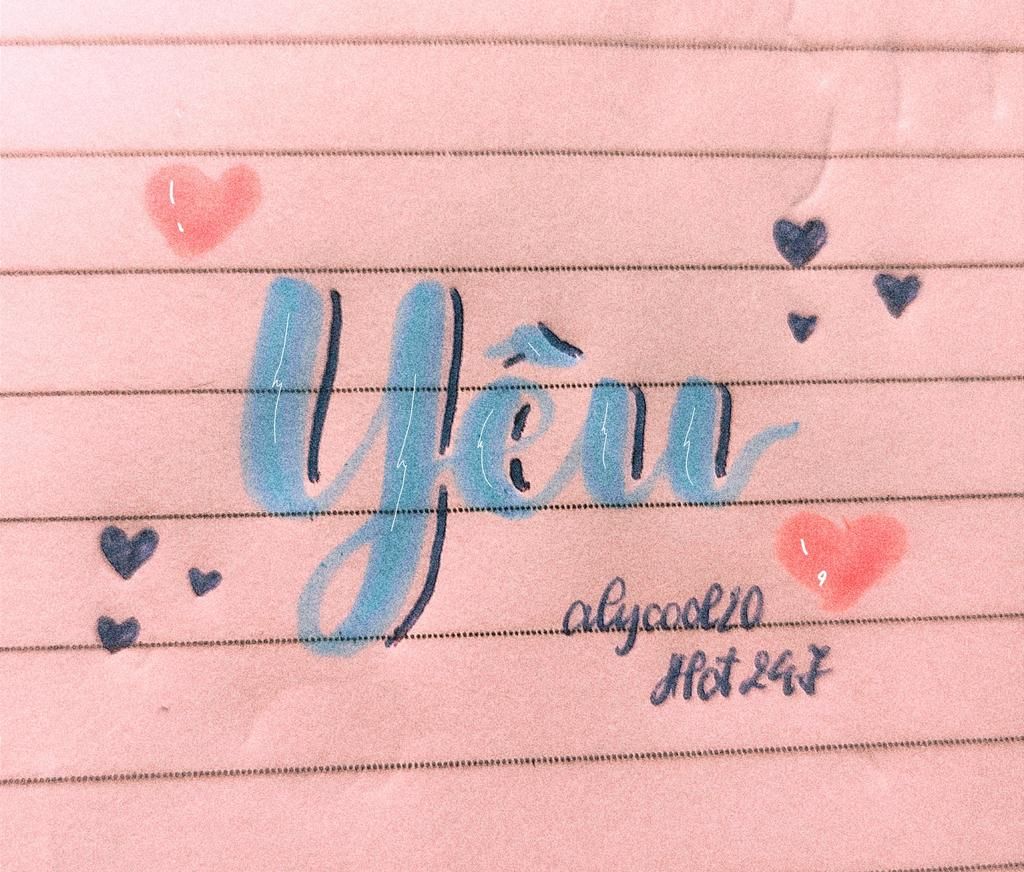 Yêu
alycool20
Hot 247